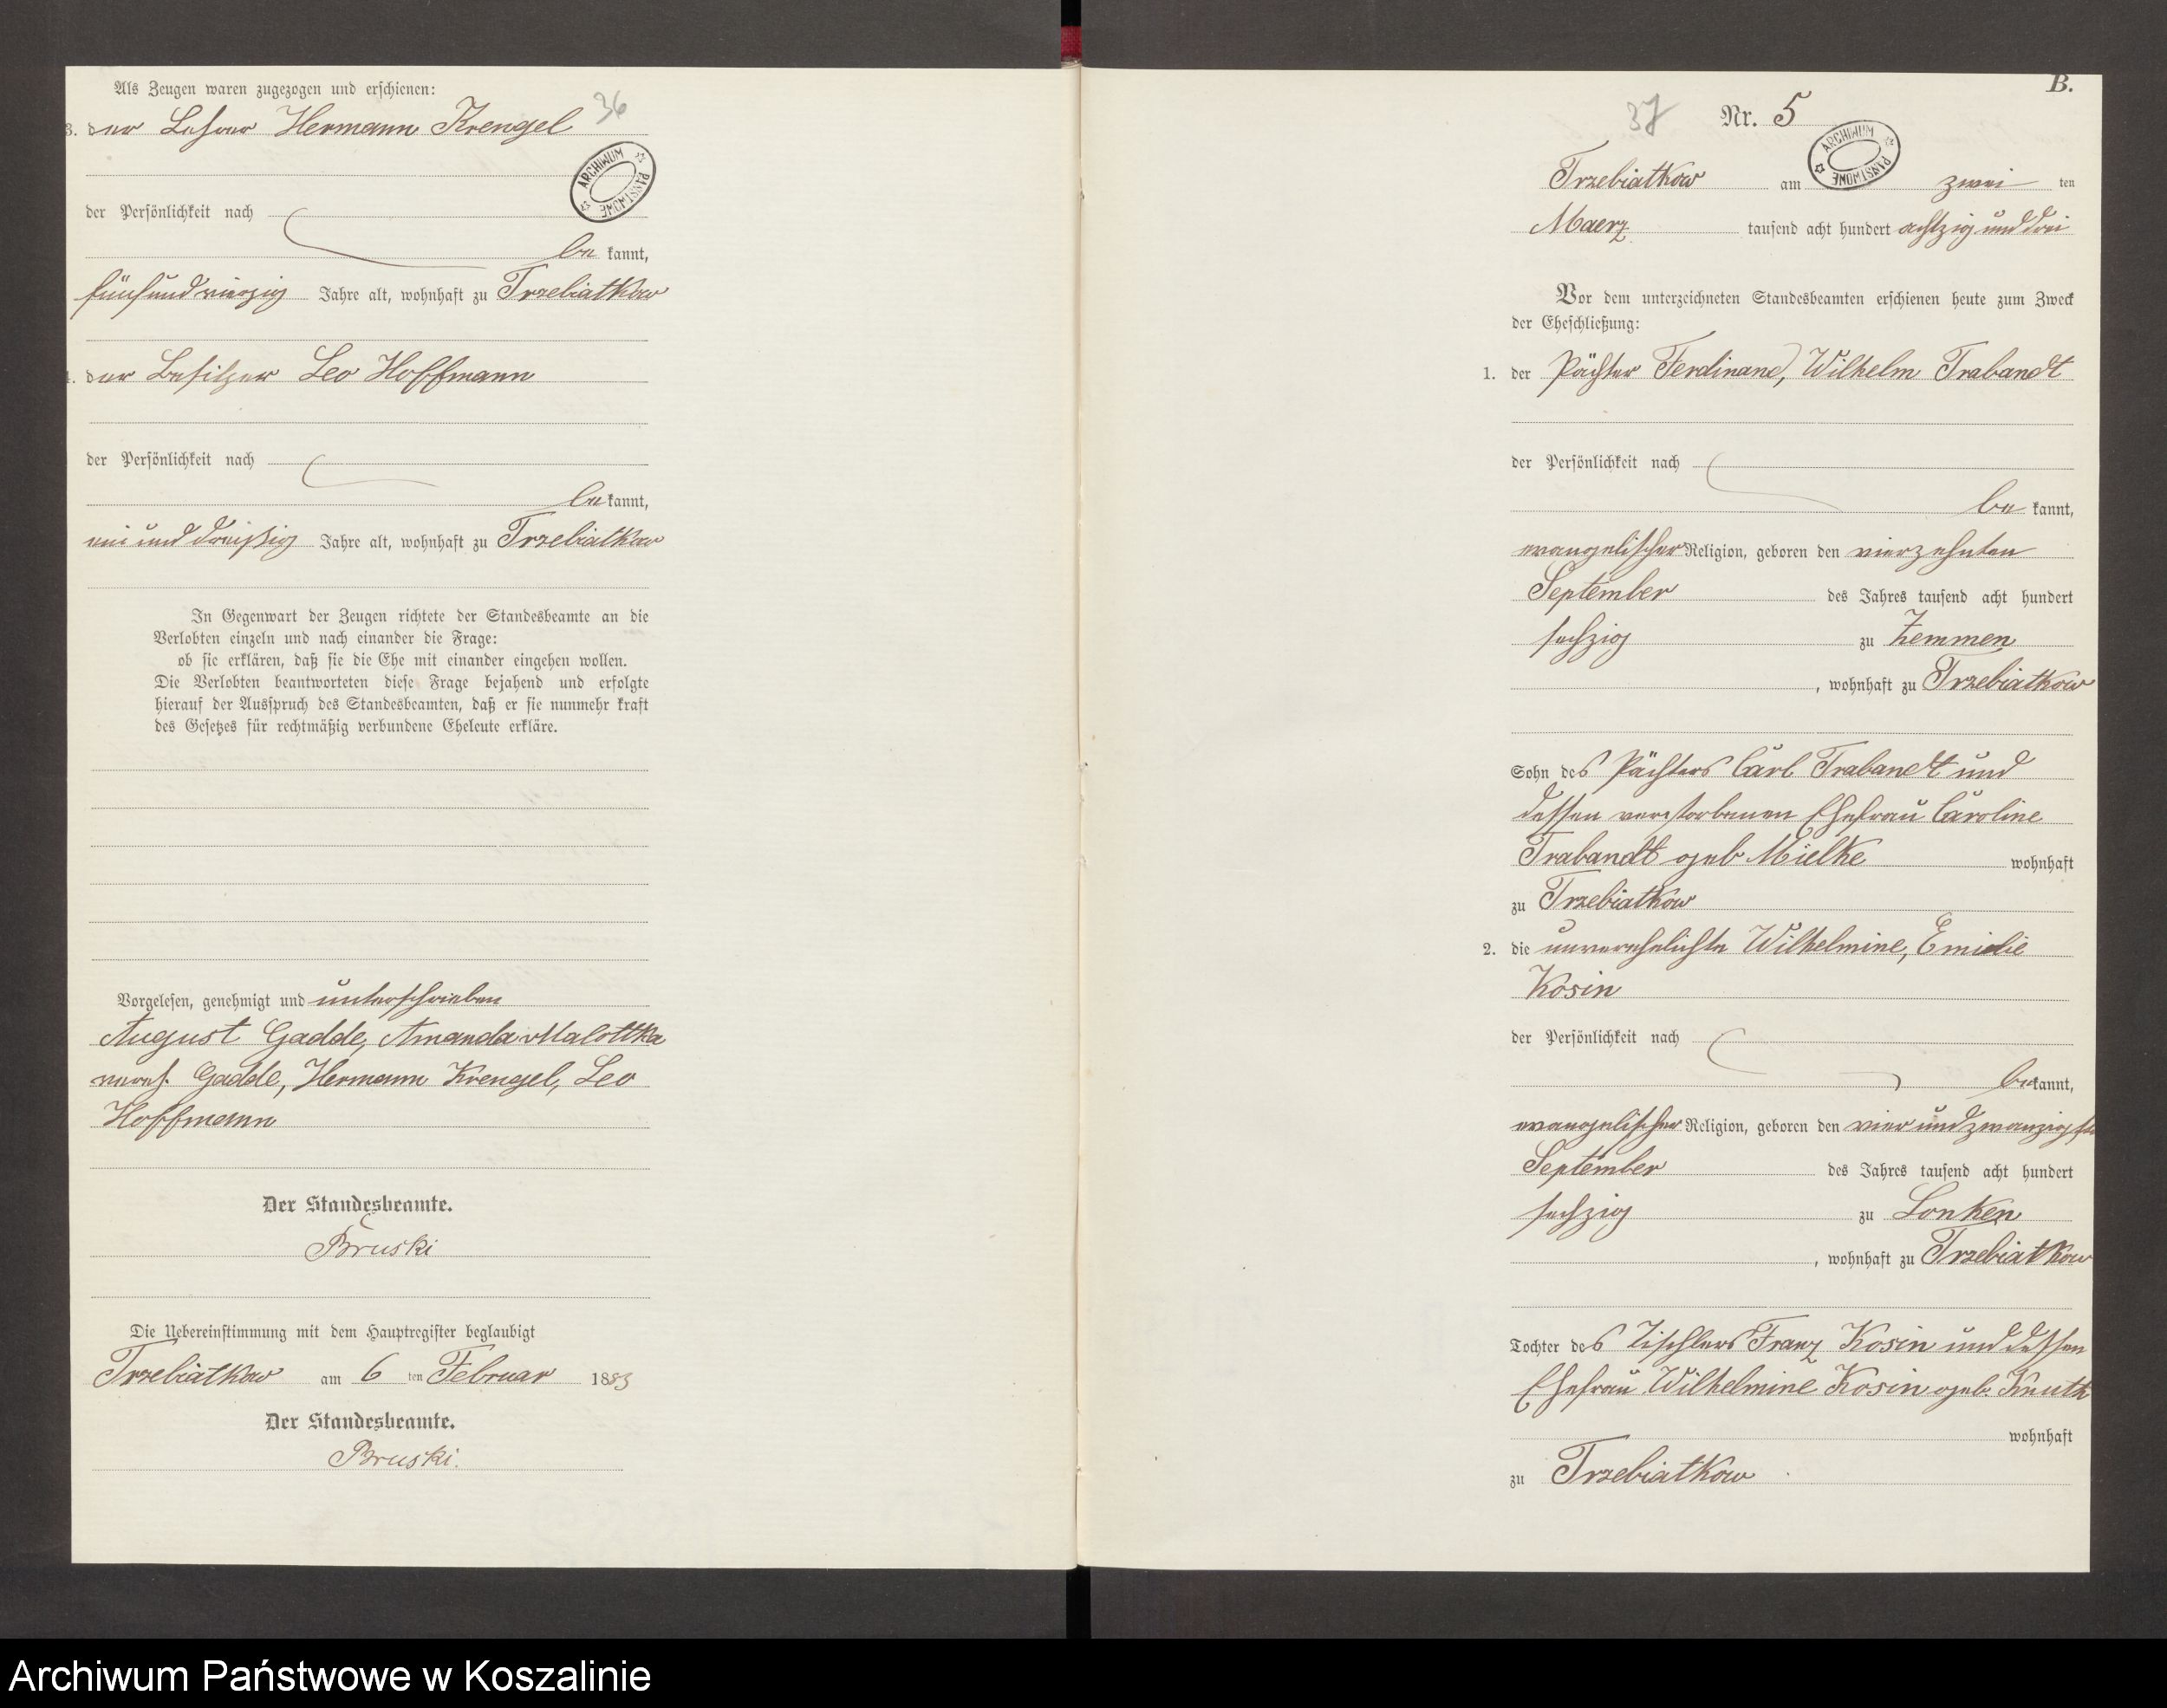 Als Zeugen waren zugezogen und erschienen:
36
3. der Lehrer Hermann Krengel
ARCHIWUM PAŃSTWOWE
der Persönlichkeit nach
be kannt,
fünfundvierzig Jahre alt, wohnhaft zu Trzebiatkow
4. der Besitzer Leo Hoffmann
der Persönlichkeit nach
be kannt,
ein und dreißig Jahre alt, wohnhaft zu Trzebiatkow
In Gegenwart der Zeugen richtete der Standesbeamte an die
Verlobten einzeln und nach einander die Frage:
ob sie erklären, daß sie die Ehe mit einander eingehen wollen.
Die Verlobten beantworteten diese Frage bejahend und erfolgte
hierauf der Ausspruch des Standesbeamten, daß er sie nunmehr kraft
des Gesetzes für rechtmäßig verbundene Eheleute erkläre.
Vorgelesen, genehmigt und unterschrieben
August Gadde, Amanda Malottka
vereh. Gadde, Hermann Krengel, Leo
Hoffmann
Der Standesbeamte.
Bruski
Die Uebereinstimmung mit dem Hauptregister beglaubigt
Trzebiatkow am 6 ten Februar 1883
Der Standesbeamte.
Bruski.
B.
37
Nr. 5
ARCHIWUM PAŃSTWOWE
Trzebiatkow am zwei ten
Maerz tausend acht hundert achtzig und drei
Vor dem unterzeichneten Standesbeamten erschienen heute zum Zweck
der Eheschließung:
1. der Pächter Ferdinand, Wilhelm Trabandt
der Persönlichkeit nach
be kannt,
evangelischer Religion, geboren den vierzehnten
September des Jahres tausend acht hundert
sechzig zu Zemmen
, wohnhaft zu Trzebiatkow
Sohn des Pächters Carl Trabandt und
dessen verstorbenen Ehefrau Caroline
Trabandt geb Mielke wohnhaft
zu Trzebiatkow
2. die unverehelichte Wilhelmine, Emilie
Kosin
der Persönlichkeit nach
be kannt,
evangelischer Religion, geboren den vier und zwanzigsten
September des Jahres tausend acht hundert
sechzig zu Lonken
, wohnhaft zu Trzebiatkow
Tochter des Tischlers Franz Kosin und dessen
Ehefrau Wilhelmine Kosin geb. Knuth
wohnhaft
zu Trzebiatkow
Archiwum Państwowe w Koszalinie